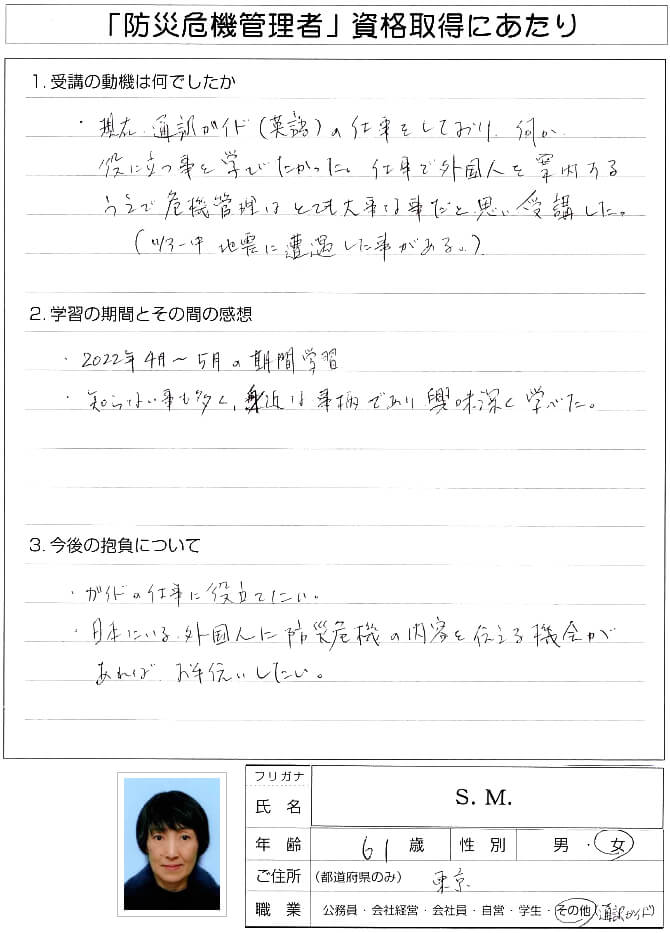 「防災危機管理者」資格取得にあたり
1. 受講の動機は何でしたか
・現在、通訳ガイド(英語)の仕事をしており、何か
役に立つ事を学びたかった。仕事で外国人を案内する
うえで危機管理はとても大事な事だと思い受講した。
(ツアー中 地震に遭遇した事がある。)
2. 学習の期間とその間の感想
・2022年4月～5月の期間学習
・知らない事も多く、身近な事柄であり興味深く学べた。
3. 今後の抱負について
・ガイドの仕事に役立てたい。
・日本にいる外国人に防災危機の内容を伝える機会が
あれば お手伝いしたい。
フリガナ
氏名 S. M.
年齢 61歳 性別 男・女
ご住所 (都道府県のみ) 東京
職業 公務員・会社経営・会社員・自営・学生・その他(通訳ガイド)